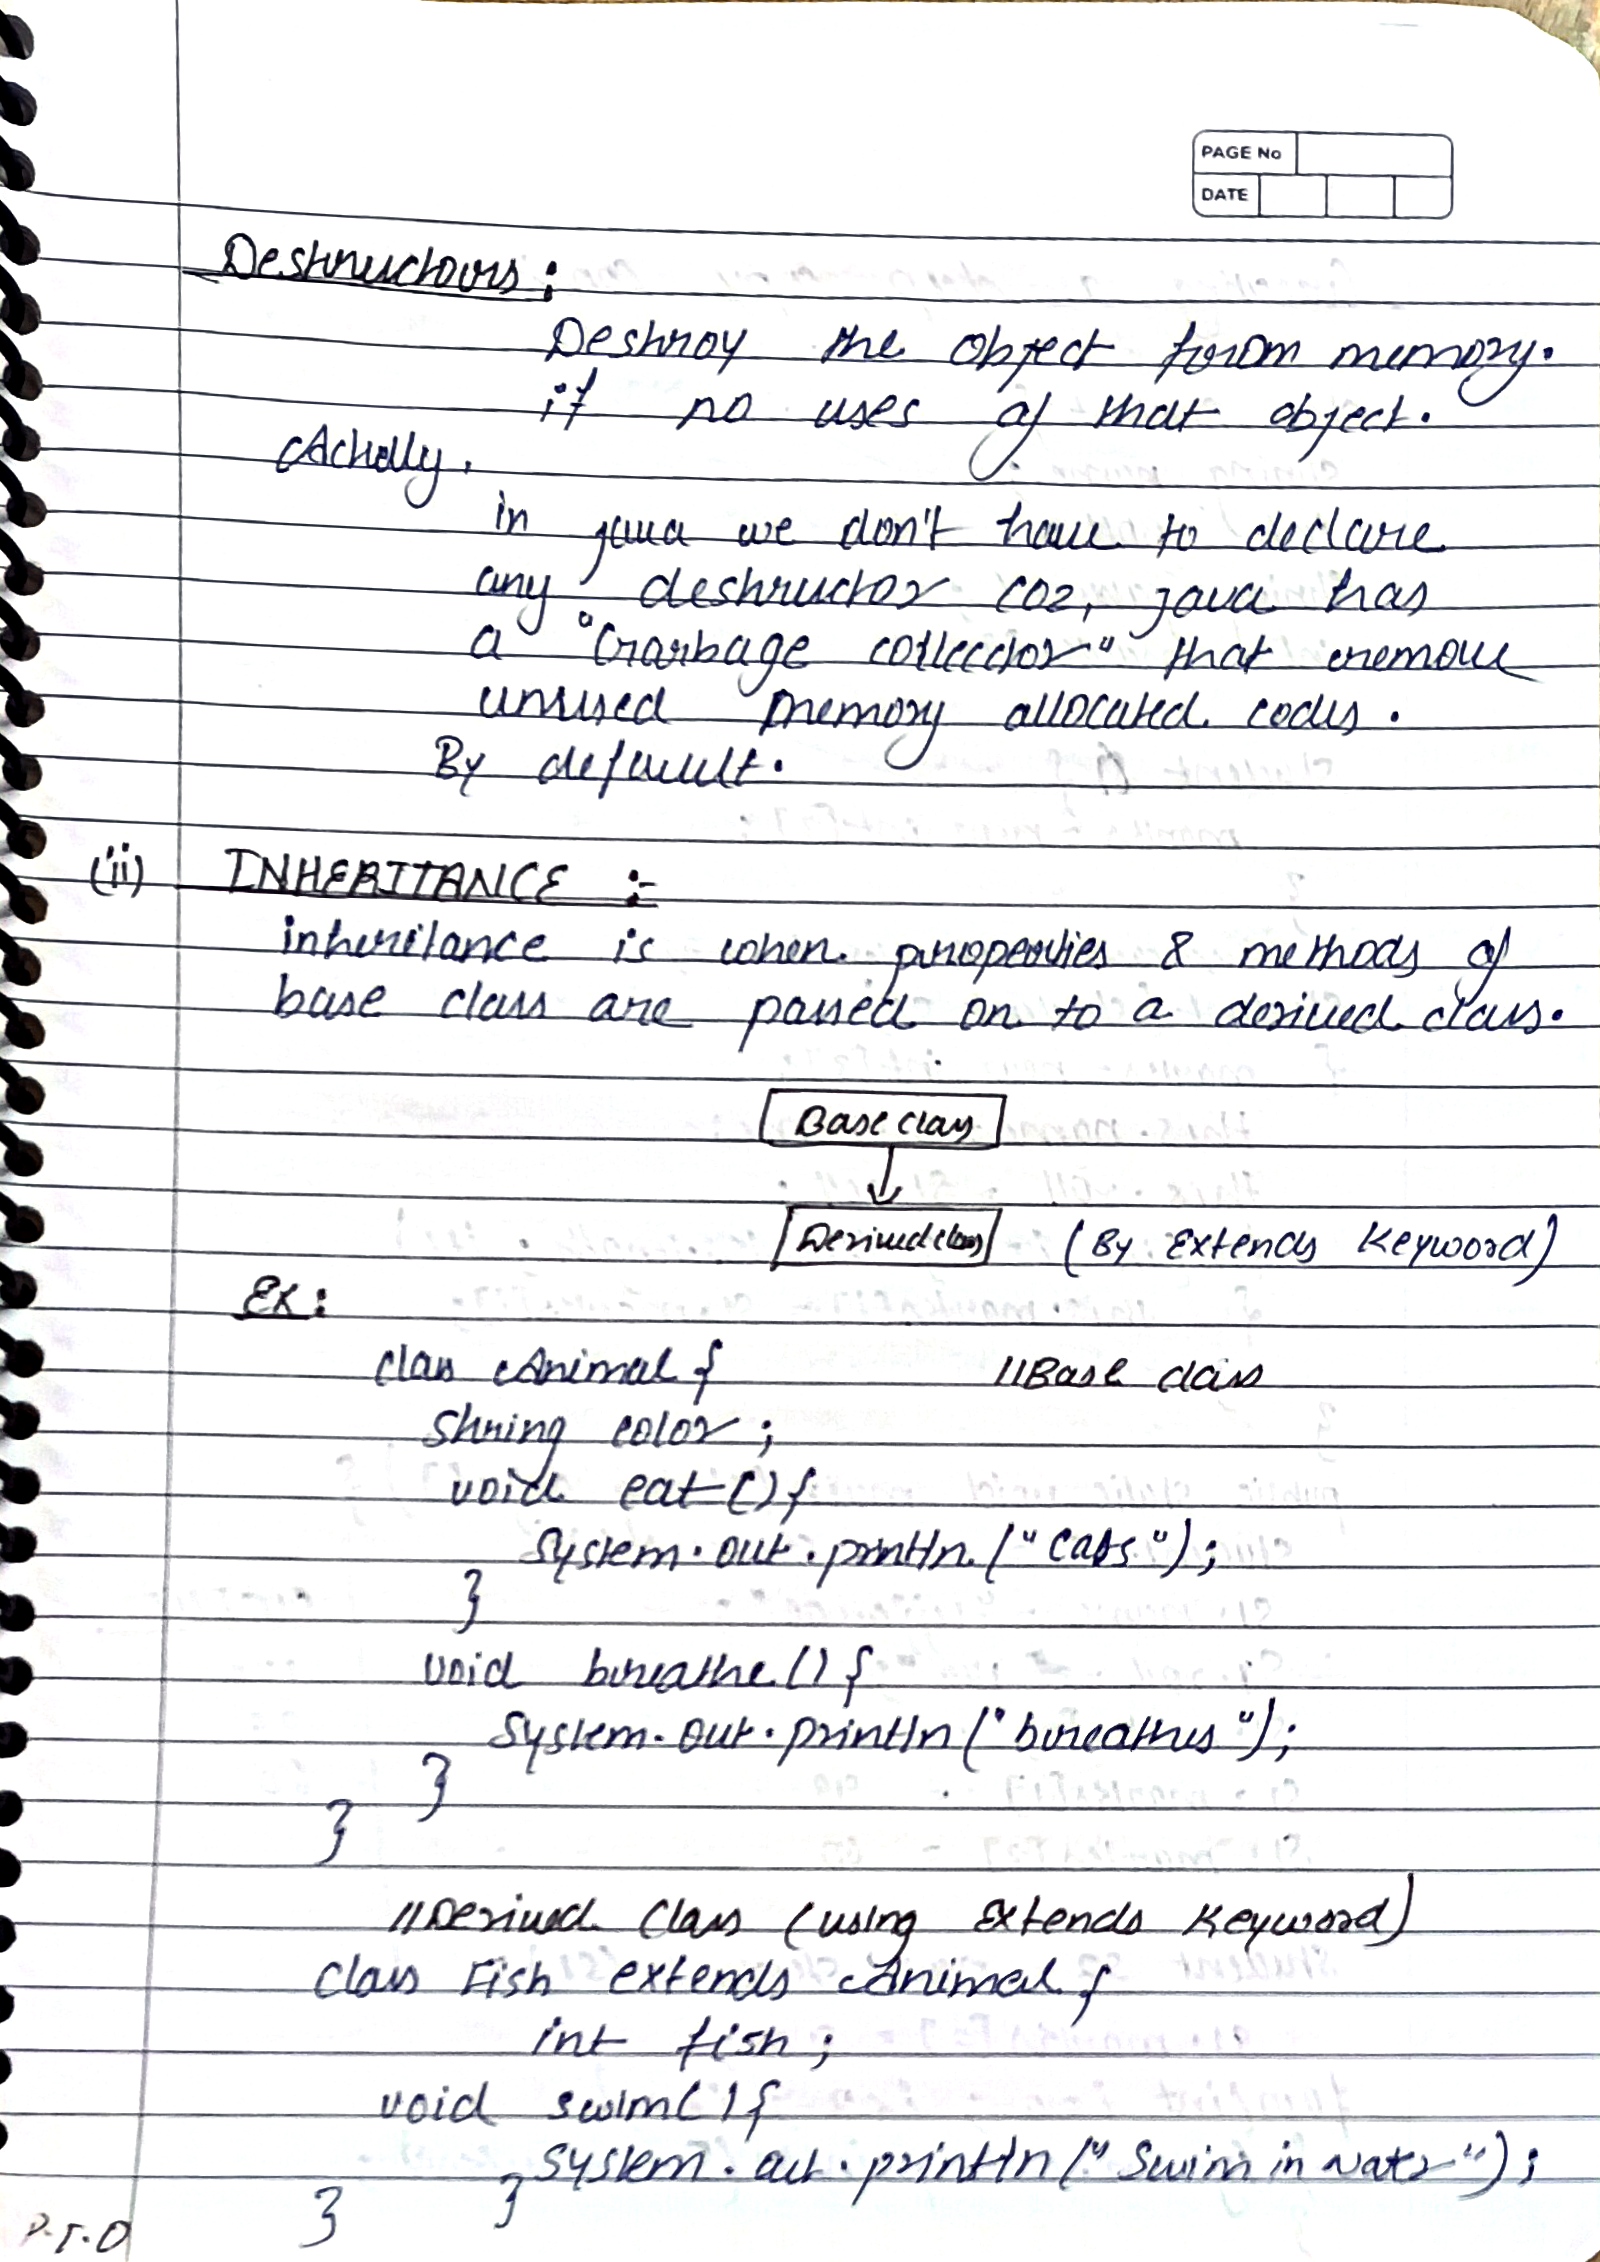 PAGE No
DATE
Destructors :
Destroy the object from memory.
if no uses of that object.
Actually,
in java we don't have to declare
any destructor coz, java has
a "Garbage collector" that remove
unused memory allocated codes.
By default.
(ii) INHERITANCE :-
inheritance is when properties & methods of
base class are passed on to a derived class.
Base class
Derived class (By Extends Keyword)
Ex :
class Animal {    //Base class
String color ;
void eat () {
System.out.println ("Eats") ;
}
void breathe () {
System.out.println ("breathes") ;
}
}
//Derived Class (using Extends Keyword)
class Fish extends Animal {
int fish ;
void swim( ) {
System.out.println (" Swim in water ") ;
} }
P.T.O